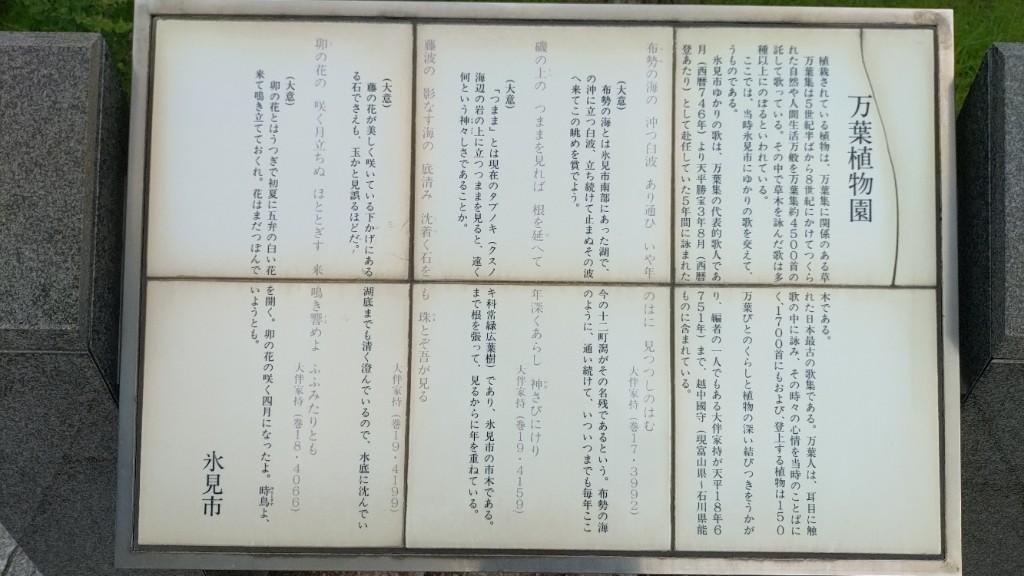 万葉植物園
植栽されている植物は、万葉集に関係のある草木である。
万葉集は5世紀半ばから8世紀にかけてつくられた日本最古の歌集である。万葉人は、耳目に触
れた自然や人間生活万般を万葉集約4500首の歌の中に詠み、その時々の心情を当時のことばに
託して歌っている。その中で草木を詠んだ歌は多く、1700首にもおよび、登上する植物は150
種以上にのぼるといわれている。
ここでは、当時氷見市にゆかりの歌を交えて、万葉びとのくらしと植物の深い結びつきをうかが
うものである。
氷見市ゆかりの歌は、万葉集の代表的歌人であり、編者の一人でもある大伴家持が天平18年6
月(西暦746年)より天平勝宝3年8月(西暦751年)まで、越中國守(現富山県~石川県能
登あたり)として赴任していた5年間に詠まれたものに含まれている。
布勢の海の 沖つ白波 あり通ひ いや年のはに 見つつしのはむ
大伴家持(巻17・3992)
(大意)
布勢の海とは氷見市南部にあった湖で、今の十二町潟がその名残であるという。布勢の海
の沖に立つ白波、立ち続けて止まぬその波のように、通い続けて、いついつまでも毎年ここ
へ来てこの眺めを賞でよう。
磯の上の つままを見れば 根を延へて 年深くあらし 神さびにけり
大伴家持(巻19・4159)
(大意)
「つまま」とは現在のタブノキ(クスノキ科常緑広葉樹)であり、氷見市の市木である。
海辺の岩の上に立つつままを見ると、遠くまで根を張って、見るからに年を重ねている。
何という神々しさであることか。
藤波の 影なす海の 底清み 沈着く石をも 珠とぞ吾が見る
大伴家持(巻19・4199)
(大意)
藤の花が美しく咲いている下かげにある湖底までも清く澄んでいるので、水底に沈んでい
る石でさえも、玉かと見誤るほどだ。
卯の花の 咲く月立ちぬ ほととぎす 来鳴き響めよ ふふみたりとも
大伴家持(巻18・4066)
(大意)
卯の花とはうつぎで初夏に五弁の白い花を開く。卯の花の咲く四月になったよ。時鳥よ、
来て鳴き立てておくれ。花はまだつぼんでいようとも。
氷見市